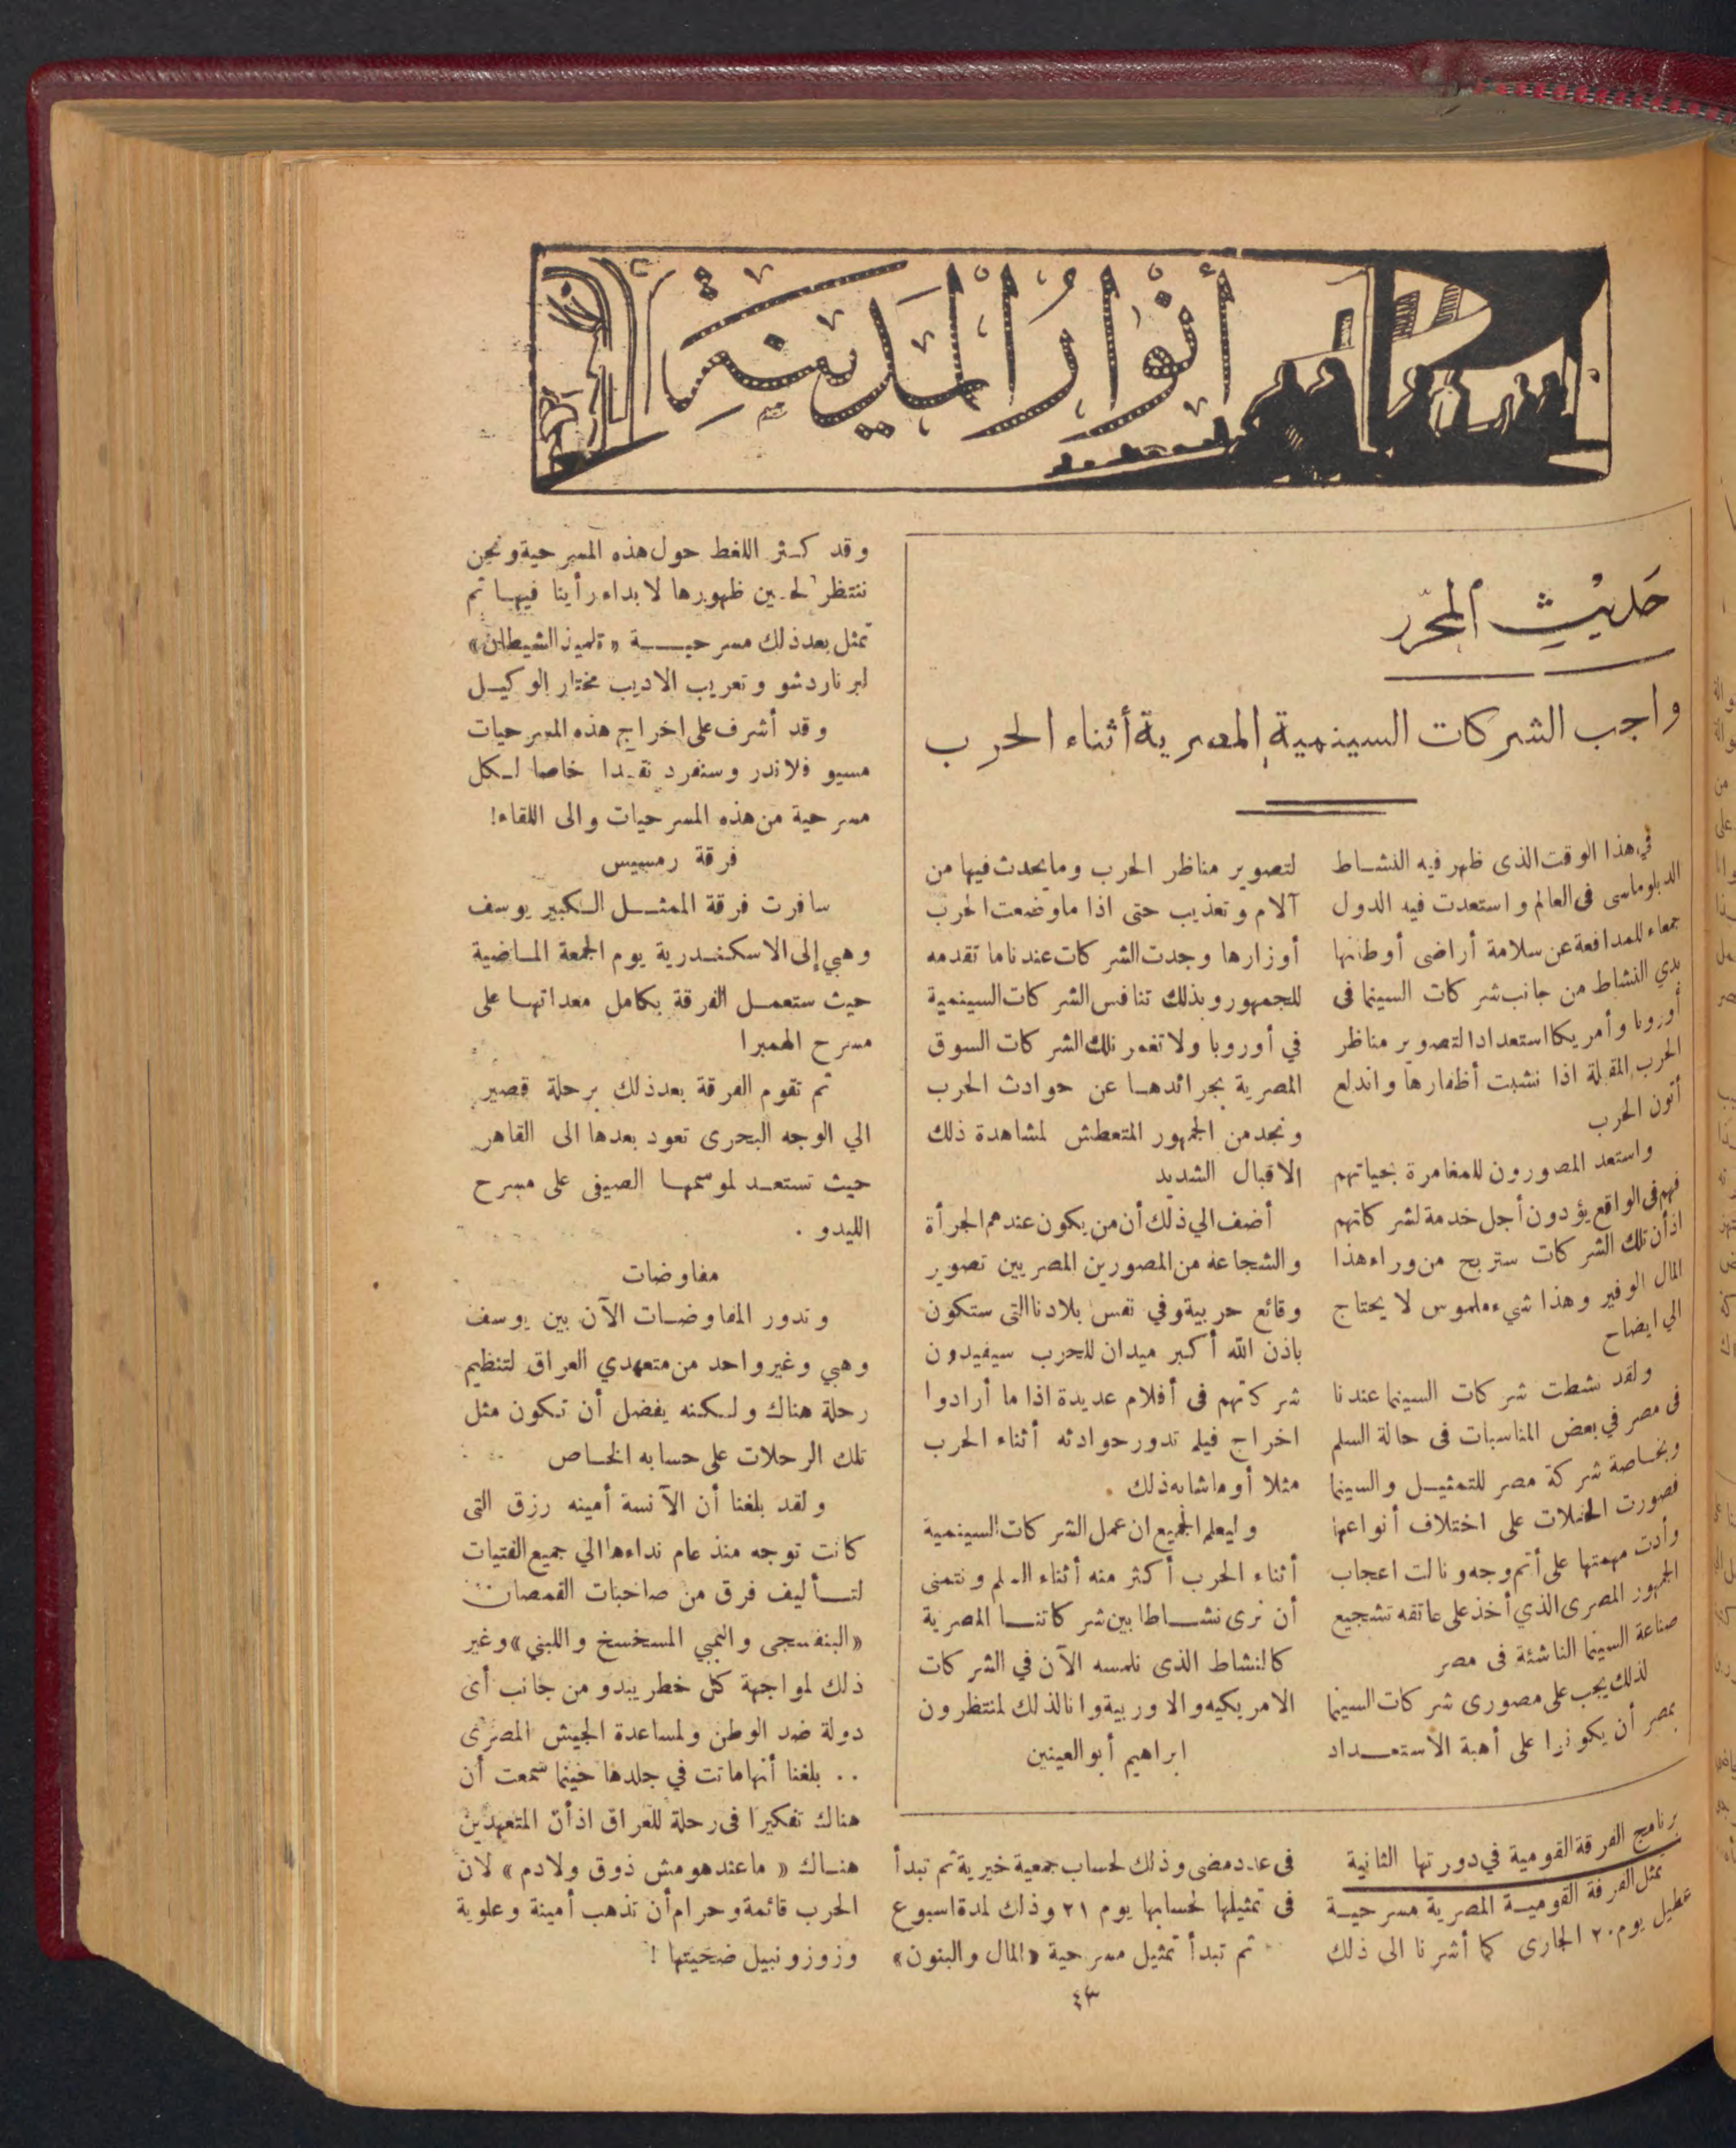 أنوار المدينة
حديث المحرر
واجب الشركات السينمية المصرية أثناء الحرب
في هذا الوقت الذى ظهر فيه النشاط
الدبلوماسى فى العالم واستعدت فيه الدول
جمعاء للمدافعة عن سلامة أراضى أوطانها
بدي النشاط من جانب شركات السينما فى
أوروبا وأمريكا استعدادا لتصوير مناظر
الحرب المقبلة اذا نشبت أظفارها واندلع
أتون الحرب
واستعد المصورون للمغامرة بحياتهم
فهم فى الواقع يؤدون أجل خدمة لشركاتهم
اذ أن تلك الشركات ستربح من وراء هذا
المال الوفير وهذا شيء ملموس لا يحتاج
الي ايضاح
ولقد نشطت شركات السينما عندنا
فى مصر في بعض المناسبات فى حالة السلم
وبخاصة شركة مصر للتمثيل والسينما
فصورت الحفلات على اختلاف أنواعها
وأدت مهمتها على أتم وجه ونالت اعجاب
الجمهور المصرى الذي أخذ على عاتقه تشجيع
صناعة السينما الناشئة فى مصر
لذلك يجب على مصورى شركات السينما
بمصر أن يكونوا على أهبة الاستعداد
لتصوير مناظر الحرب وما يحدث فيها من
آلام وتعذيب حتى اذا ما وضعت الحرب
أوزارها وجدت الشركات عندنا ما تقدمه
للجمهور وبذلك تنافس الشركات السينمية
في أوروبا ولا تغمر تلك الشركات السوق
المصرية بجرائدها عن حوادث الحرب
ونجد من الجمهور المتعطش لمشاهدة ذلك
الاقبال الشديد
أضف الي ذلك أن من يكون عندهم الجرأة
والشجاعة من المصورين المصريين تصوير
وقائع حربية وفي نفس بلادنا التى ستكون
باذن الله أكبر ميدان للحرب سيفيدون
شركتهم فى أفلام عديدة اذا ما أرادوا
اخراج فيلم تدور حوادثه أثناء الحرب
مثلا أو ما شابه ذلك .
وليعلم الجميع ان عمل الشركات السينمية
أثناء الحرب أكثر منه أثناء السلم ونتمنى
أن نرى نشاطا بين شركاتنا المصرية
كالنشاط الذى نلمسه الآن في الشركات
الامريكيه والاوربية وانا لذلك لمنتظرون
ابراهيم أبو العينين
برنامج الفرقة القومية في دورتها الثانية
تمثل الفرقة القومية المصرية مسرحية
عطيل يوم ٢٠ الجارى كما أشرنا الى ذلك
فى عدد مضى وذلك لحساب جمعية خيرية ثم تبدأ
فى تمثيلها لحسابها يوم ٢١ وذلك لمدة اسبوع
ثم تبدأ تمثيل مسرحية «المال والبنون»
وقد كثر اللغط حول هذه المسرحية ونحن
ننتظر لحين ظهورها لابداء رأينا فيها ثم
تمثل بعد ذلك مسرحية «تلميذ الشيطان»
لبرناردشو وتعريب الاديب مختار الوكيل
وقد أشرف على اخراج هذه المسرحيات
مسيو فلاندر وسنفرد نقدا خاصا لكل
مسرحية من هذه المسرحيات والى اللقاء!
فرقة رمسيس
سافرت فرقة الممثل الكبير يوسف
وهبي إلى الاسكندرية يوم الجمعة الماضية
حيث ستعمل الفرقة بكامل معداتها على
مسرح الهمبرا
ثم تقوم الفرقة بعد ذلك برحلة قصير
الي الوجه البحرى تعود بعدها الى القاهر
حيث تستعد لموسمها الصيفى على مسرح
الليدو .
مفاوضات
وتدور المفاوضات الآن بين يوسف
وهبي وغير واحد من متعهدي العراق لتنظيم
رحلة هناك ولكنه يفضل أن تكون مثل
تلك الرحلات على حسابه الخاص
ولقد بلغنا أن الآنسة أمينه رزق التى
كانت توجه منذ عام نداءها الي جميع الفتيات
لتأليف فرق من صاحبات القمصان
«البنفسجى والبمبي المسخسخ واللبني» وغير
ذلك لمواجهة كل خطر يبدو من جانب أى
دولة ضد الوطن ولمساعدة الجيش المصرى
.. بلغنا أنها ماتت في جلدها حينما سمعت أن
هناك تفكيرا فى رحلة للعراق اذ أن المتعهدين
هناك «ما عندهومش ذوق ولا دم» لان
الحرب قائمة وحرام أن تذهب أمينة وعلوية
وزوزو نبيل ضحيتها !
٤٣